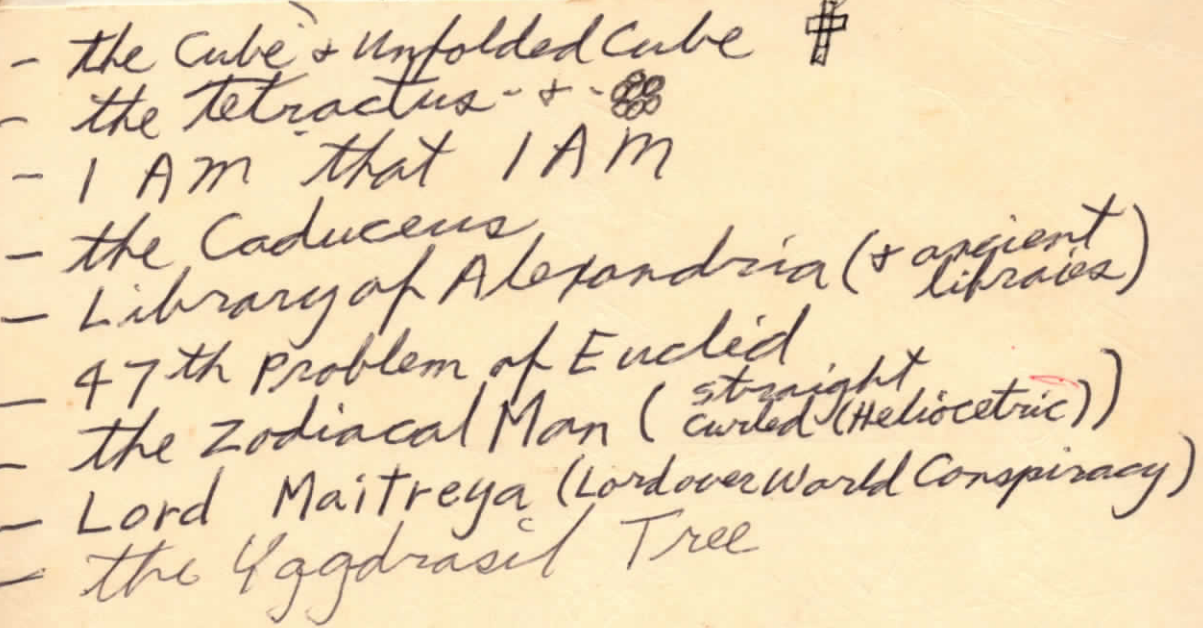 - the Cube & Unfolded Cube
- the Tetractus - & -
- I AM that I AM
- the Caduceus
- Library of Alexandria (& ancient libraies)
- 47th Problem of Euclid
- the Zodiacal Man ( straight curled (Heliocetric))
- Lord Maitreya (Lord over World Conspiracy)
- the Yggdrasil Tree